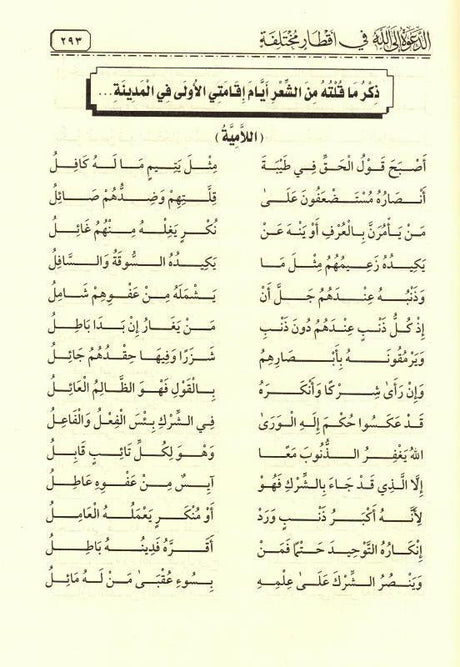 الدَّعْوَةُ إِلَى اللهِ فِي أَقْطَارٍ مُخْتَلِفَةٍ ٢٩٣
ذِكْرُ مَا قُلْتُهُ مِنَ الشِّعْرِ أَيَّامَ إِقَامَتِي الأُولَى فِي الْمَدِينَةِ...
(اللاَّمِيَّةُ)
أَصْبَحَ قَوْلُ الْحَقِّ فِي طَيْبَةَ مِثْلَ يَتِيمٍ مَا لَهُ كَافِلُ
أَنْصَارُهُ مُسْتَضْعَفُونَ عَلَىٰ قِلَّتِهِمْ وَضِدُّهُمْ صَائِلُ
مَنْ يَأْمُرَنَّ بِالْعُرْفِ أَوْ يَنْهَ عَنْ نُكْرٍ يَغْلِهُ مِنْهُمُ غَائِلُ
يَكِيدُهُ زَعِيمُهُمْ مِثْلَ مَا يَكِيدُهُ السُّوقَةُ وَالسَّافِلُ
وَذَنْبُهُ عِنْدَهُمُ جَلَّ أَنْ يَشْمَلَهُ مِنْ عَفْوِهِمْ شَامِلُ
إِذْ كُلُّ ذَنْبٍ عِنْدَهُمْ دُونَ ذَنْبِ مَنْ يَغَارُ إِنْ بَدَا بَاطِلُ
وَيَرْمُقُونَهُ بِأَبْصَارِهِمْ شَزَرًا وَفِيهَا حِقْدُهُمْ جَائِلُ
وَإِنْ رَأَىٰ شِرْكًا وَأَنْكَرَهُ بِالْقَوْلِ فَهْوَ الظَّالِمُ الْعَائِلُ
قَدْ عَكَسُوا حُكْمَ إِلَهِ الْوَرَىٰ فِي الشِّرْكِ بِئْسَ الْفِعْلُ وَالْفَاعِلُ
اللهُ يَغْفِرُ الذُّنُوبَ مَعًا وَهْوَ لِكُلِّ تَائِبٍ قَابِلُ
إِلَّا الَّذِي قَدْ جَاءَ بِالشِّرْكِ فَهْوَ آيِسٌ مِنْ عَفْوِهِ عَاطِلُ
لِأَنَّهُ أَكْبَرُ ذَنْبٍ وَرَدْ أَوْ مُنْكَرٍ يَعْمَلُهُ الْعَامِلُ
إِنْكَارُهُ التَّوْحِيدَ حَتْمًا فَمَنْ أَقَرَّهُ فَدِينُهُ بَاطِلُ
وَيَنْصُرُ الشِّرْكَ عَلَىٰ عِلْمِهِ بِسُوءِ عُقْبَىٰ مَنْ لَهُ مَائِلُ